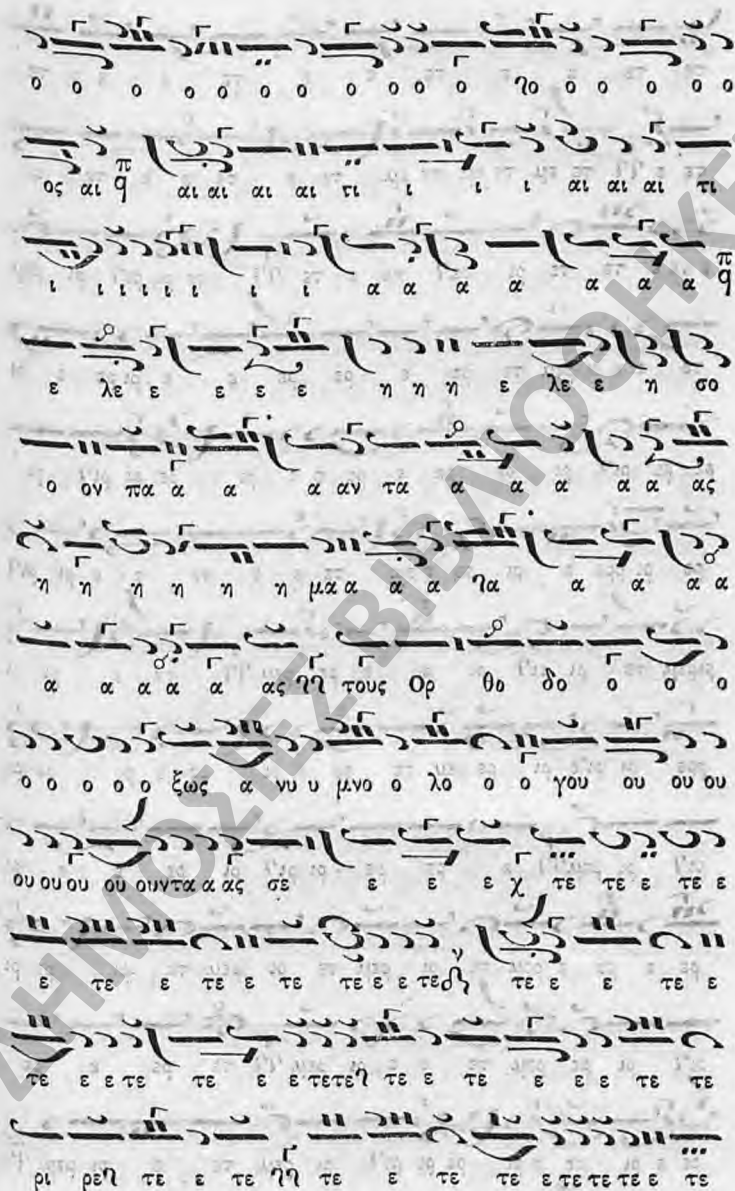 ο ο ο ο ο ο ο ο ο ο ο ο ο ο ο ο
ος αι π q αι αι αι αι τι ι ι ι αι αι αι τι
ι ι ι ι ι ι ι ι α α α α α α α π q
ε λε ε ε ε ε η η η ε λε ε η σο
ο ον πα α α α αν τα α α α α α ας
η η η η η η μα α α α α α α α α
α α α α α ας τους Ορ θο δο ο ο ο
ο ο ο ο ο ξως α νυ υ μνο ο λο ο ο γου ου ου ου
ου ου ου ου ουντα α ας σε ε ε ε χ τε τε ε τε ε
ε τε ε τε ε τε τε ε ε τε τε ε ε τε ε
τε ε ε τε τε ε ε τε τε τε ε τε ε ε ε τε τε
ρι ρε τε ε τε τε ε τε τε ε τε τε τε ε τε
ΔΗΜΟΣΙΕΣ ΒΙΒΛΙΟΘΗΚΕ